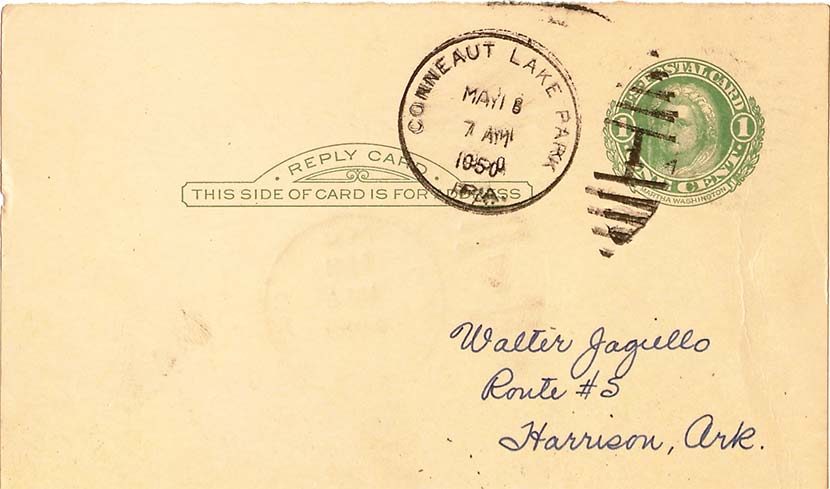 CONNEAUT LAKE PARK
MAY 18
7 AM
1950
PA.
U.S. POSTAL CARD
1 1
ONE CENT
MARTHA WASHINGTON
REPLY CARD
THIS SIDE OF CARD IS FOR ADDRESS
Walter Jagiello
Route #5
Harrison, Ark.